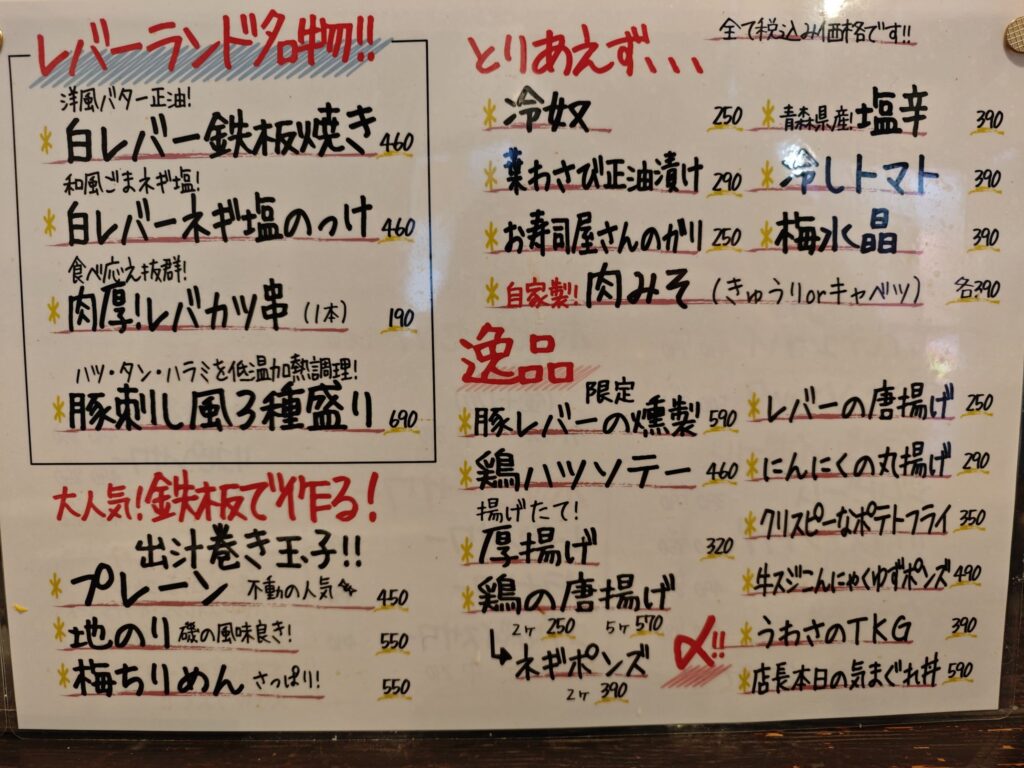 レバーランド名物!!
洋風バター正油!
*白レバー鉄板焼き 460
和風ごまネギ塩!
*白レバーネギ塩のっけ 460
食べ応え抜群!
*肉厚!レバカツ串(1本) 190
ハツ・タン・ハラミを低温加熱調理!
*豚刺し風3種盛り 690
大人気!鉄板で作る!
出汁巻き玉子!!
*プレーン 不動の人気 450
*地のり 磯の風味良き! 550
*梅ちりめん さっぱり! 550
全て税込み価格です!!
とりあえず、、、
*冷奴 250
*葉わさび正油漬け 290
*お寿司屋さんのガリ 250
*青森県産!塩辛 390
*冷しトマト 390
*梅水晶 390
*自家製!肉みそ(きゅうりorキャベツ) 各390
逸品
限定
*豚レバーの燻製 590
*鶏ハツソテー 460
揚げたて!
*厚揚げ 320
*鶏の唐揚げ
2ヶ 250 5ヶ 570
↳ネギポンズ
2ヶ 390
*レバーの唐揚げ 250
*にんにくの丸揚げ 290
*クリスピーなポテトフライ 350
*牛スジこんにゃくゆずポンズ 490
〆!!
*うわさのTKG 390
*店長本日の気まぐれ丼 590